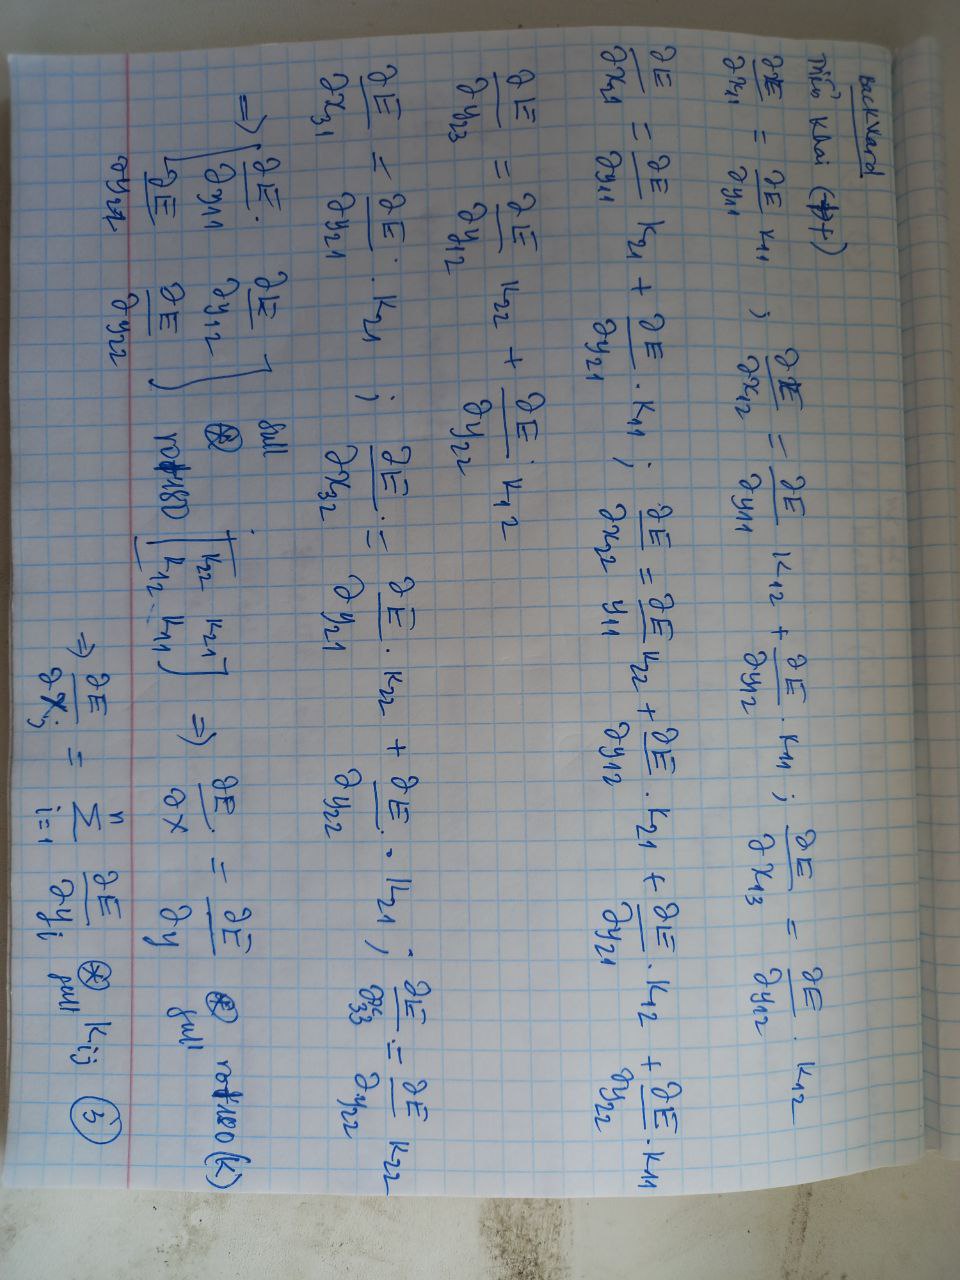 Backward
Triển khai (+)
∂E/∂x11 = ∂E/∂y11 K11 ; ∂E/∂x12 = ∂E/∂y11 K12 + ∂E/∂y12 . K11 ; ∂E/∂x13 = ∂E/∂y12 . K12
∂E/∂x21 = ∂E/∂y11 K21 + ∂E/∂y21 . K11 ; ∂E/∂x22 = ∂E/y11 K22 + ∂E/∂y12 . K21 + ∂E/∂y21 . K12 + ∂E/∂y22 . K11
∂E/∂y23 = ∂E/∂y12 K22 + ∂E/∂y22 K12
∂E/∂x31 = ∂E/∂y21 . K21 ; ∂E/∂x32 = ∂E/∂y21 . K22 + ∂E/∂y22 . K21 ; ∂E/∂x33 = ∂E/∂y22 K22
=> [∂E/∂y11 ∂E/∂y12 full
⊛ [K22 K21 => ∂E/∂x = ∂E/∂y ⊛ full rot180 (K)
∂E/∂y22] rot180 K12 K11]
=> ∂E/∂xj = n Σ i=1 ∂E/∂yi ⊛ full Kij ③